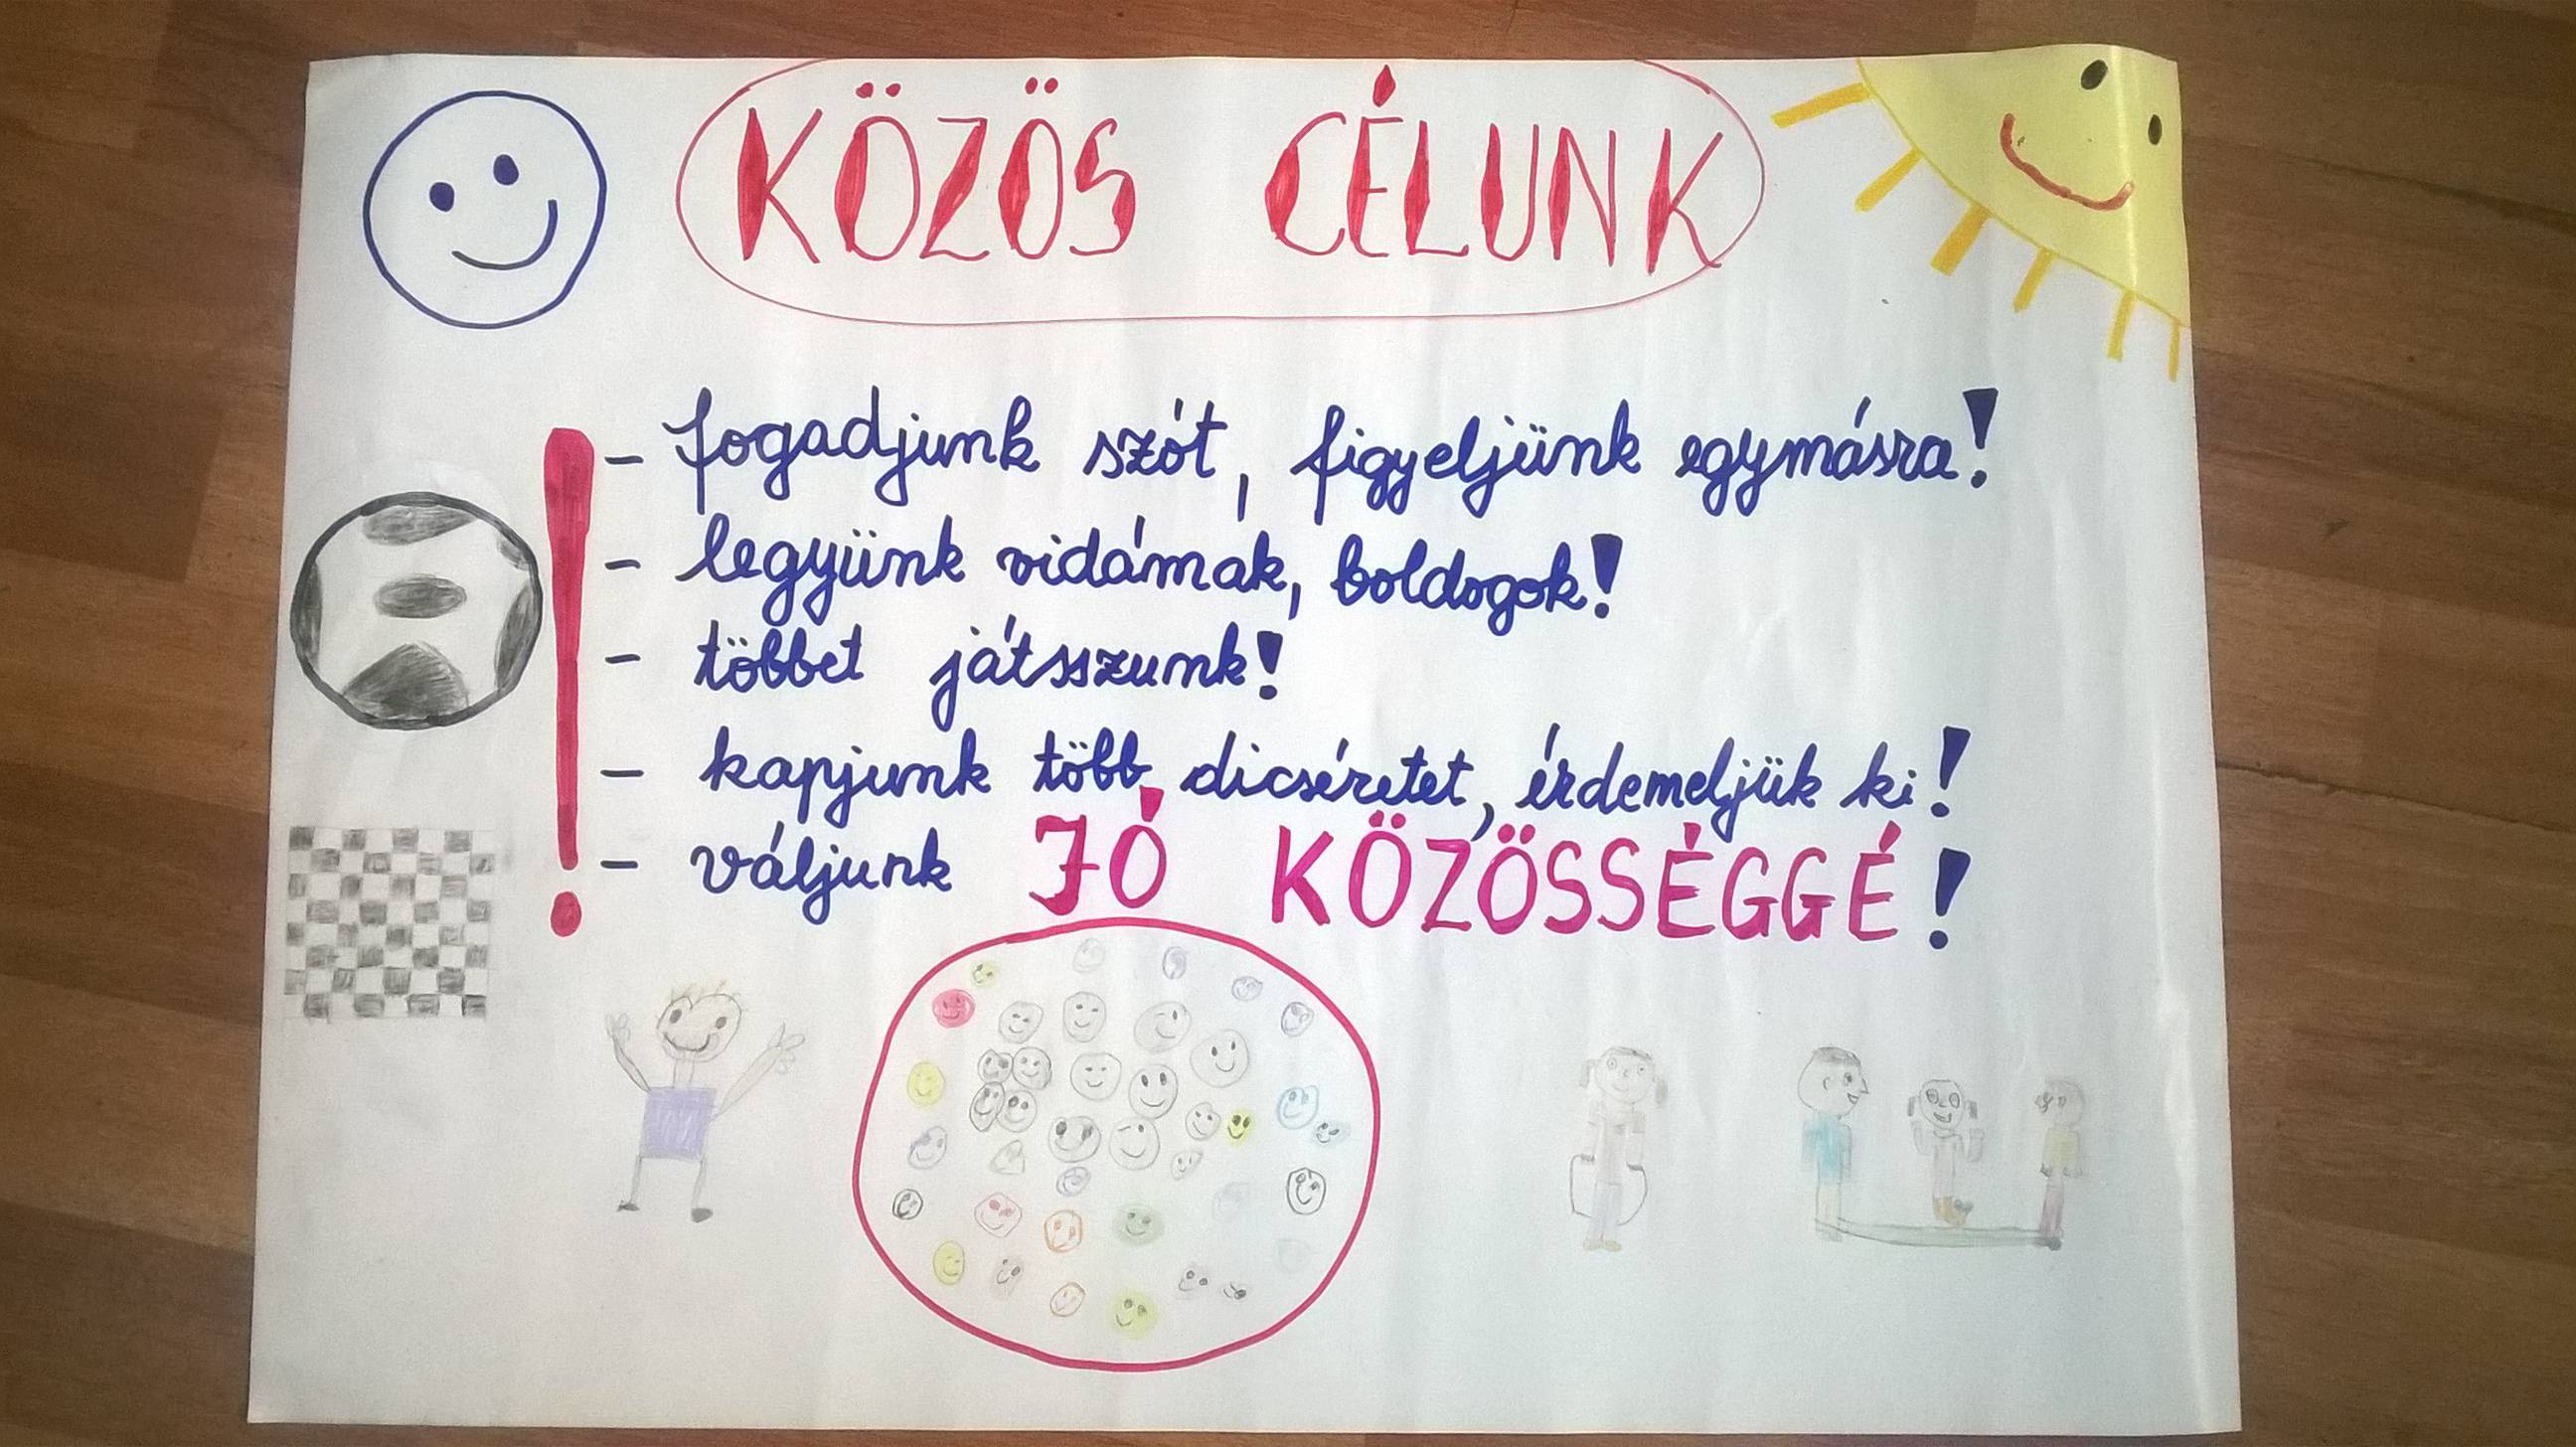 KÖZÖS CÉLUNK
- fogadjunk szót, figyeljünk egymásra!
- legyünk vidámak, boldogok!
- többet játsszunk!
- kapjunk több dicséretet, érdemeljük ki!
- váljunk JÓ KÖZÖSSÉGGÉ!